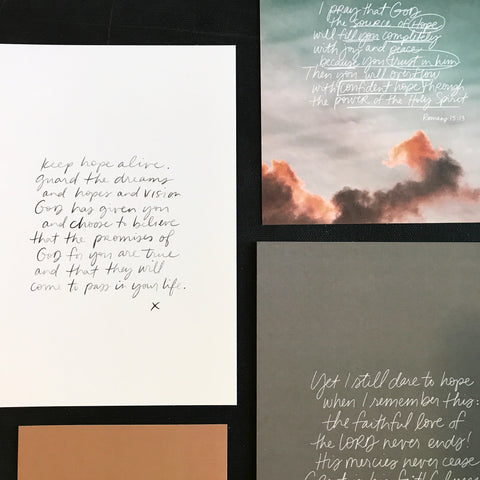 keep hope alive.
guard the dreams
and hopes and vision
God has given you
and choose to believe
that the promises of
God for you are true
and that they will
come to pass in your life.
x
I pray that God
the source of Hope
will fill you completely
with joy and peace
because you trust in him
Then you will overflow
with confident hope through
the power of the Holy Spirit
Romans 15:13
Yet I still dare to hope
when I remember this:
the faithful love of
the LORD never ends!
His mercies never cease